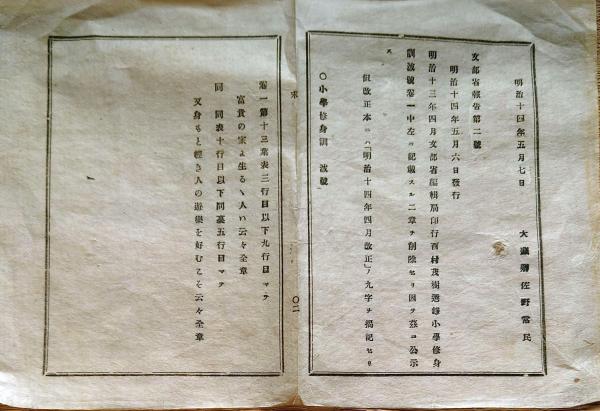 明治十四年五月七日
大藏卿佐野常民
文部省報告第二號
明治十四年五月六日發行
明治十三年四月文部省編輯局印行西村茂樹選錄小學修身
訓 卷一中左ニ記載スル二章ヲ削除セリ因テ茲ニ公示
ス
但改正本ニハ「明治十四年四月改正」ノ九字ヲ揭記セリ
〇小學修身訓
〇二
卷一第十三葉表三行目以下九行目マデ
富貴の家に生るゝ人ハ云々全章
同 同表十行目以下同裏五行目マデ
又身もと輕き人の遊樂を好むこそ云々全章